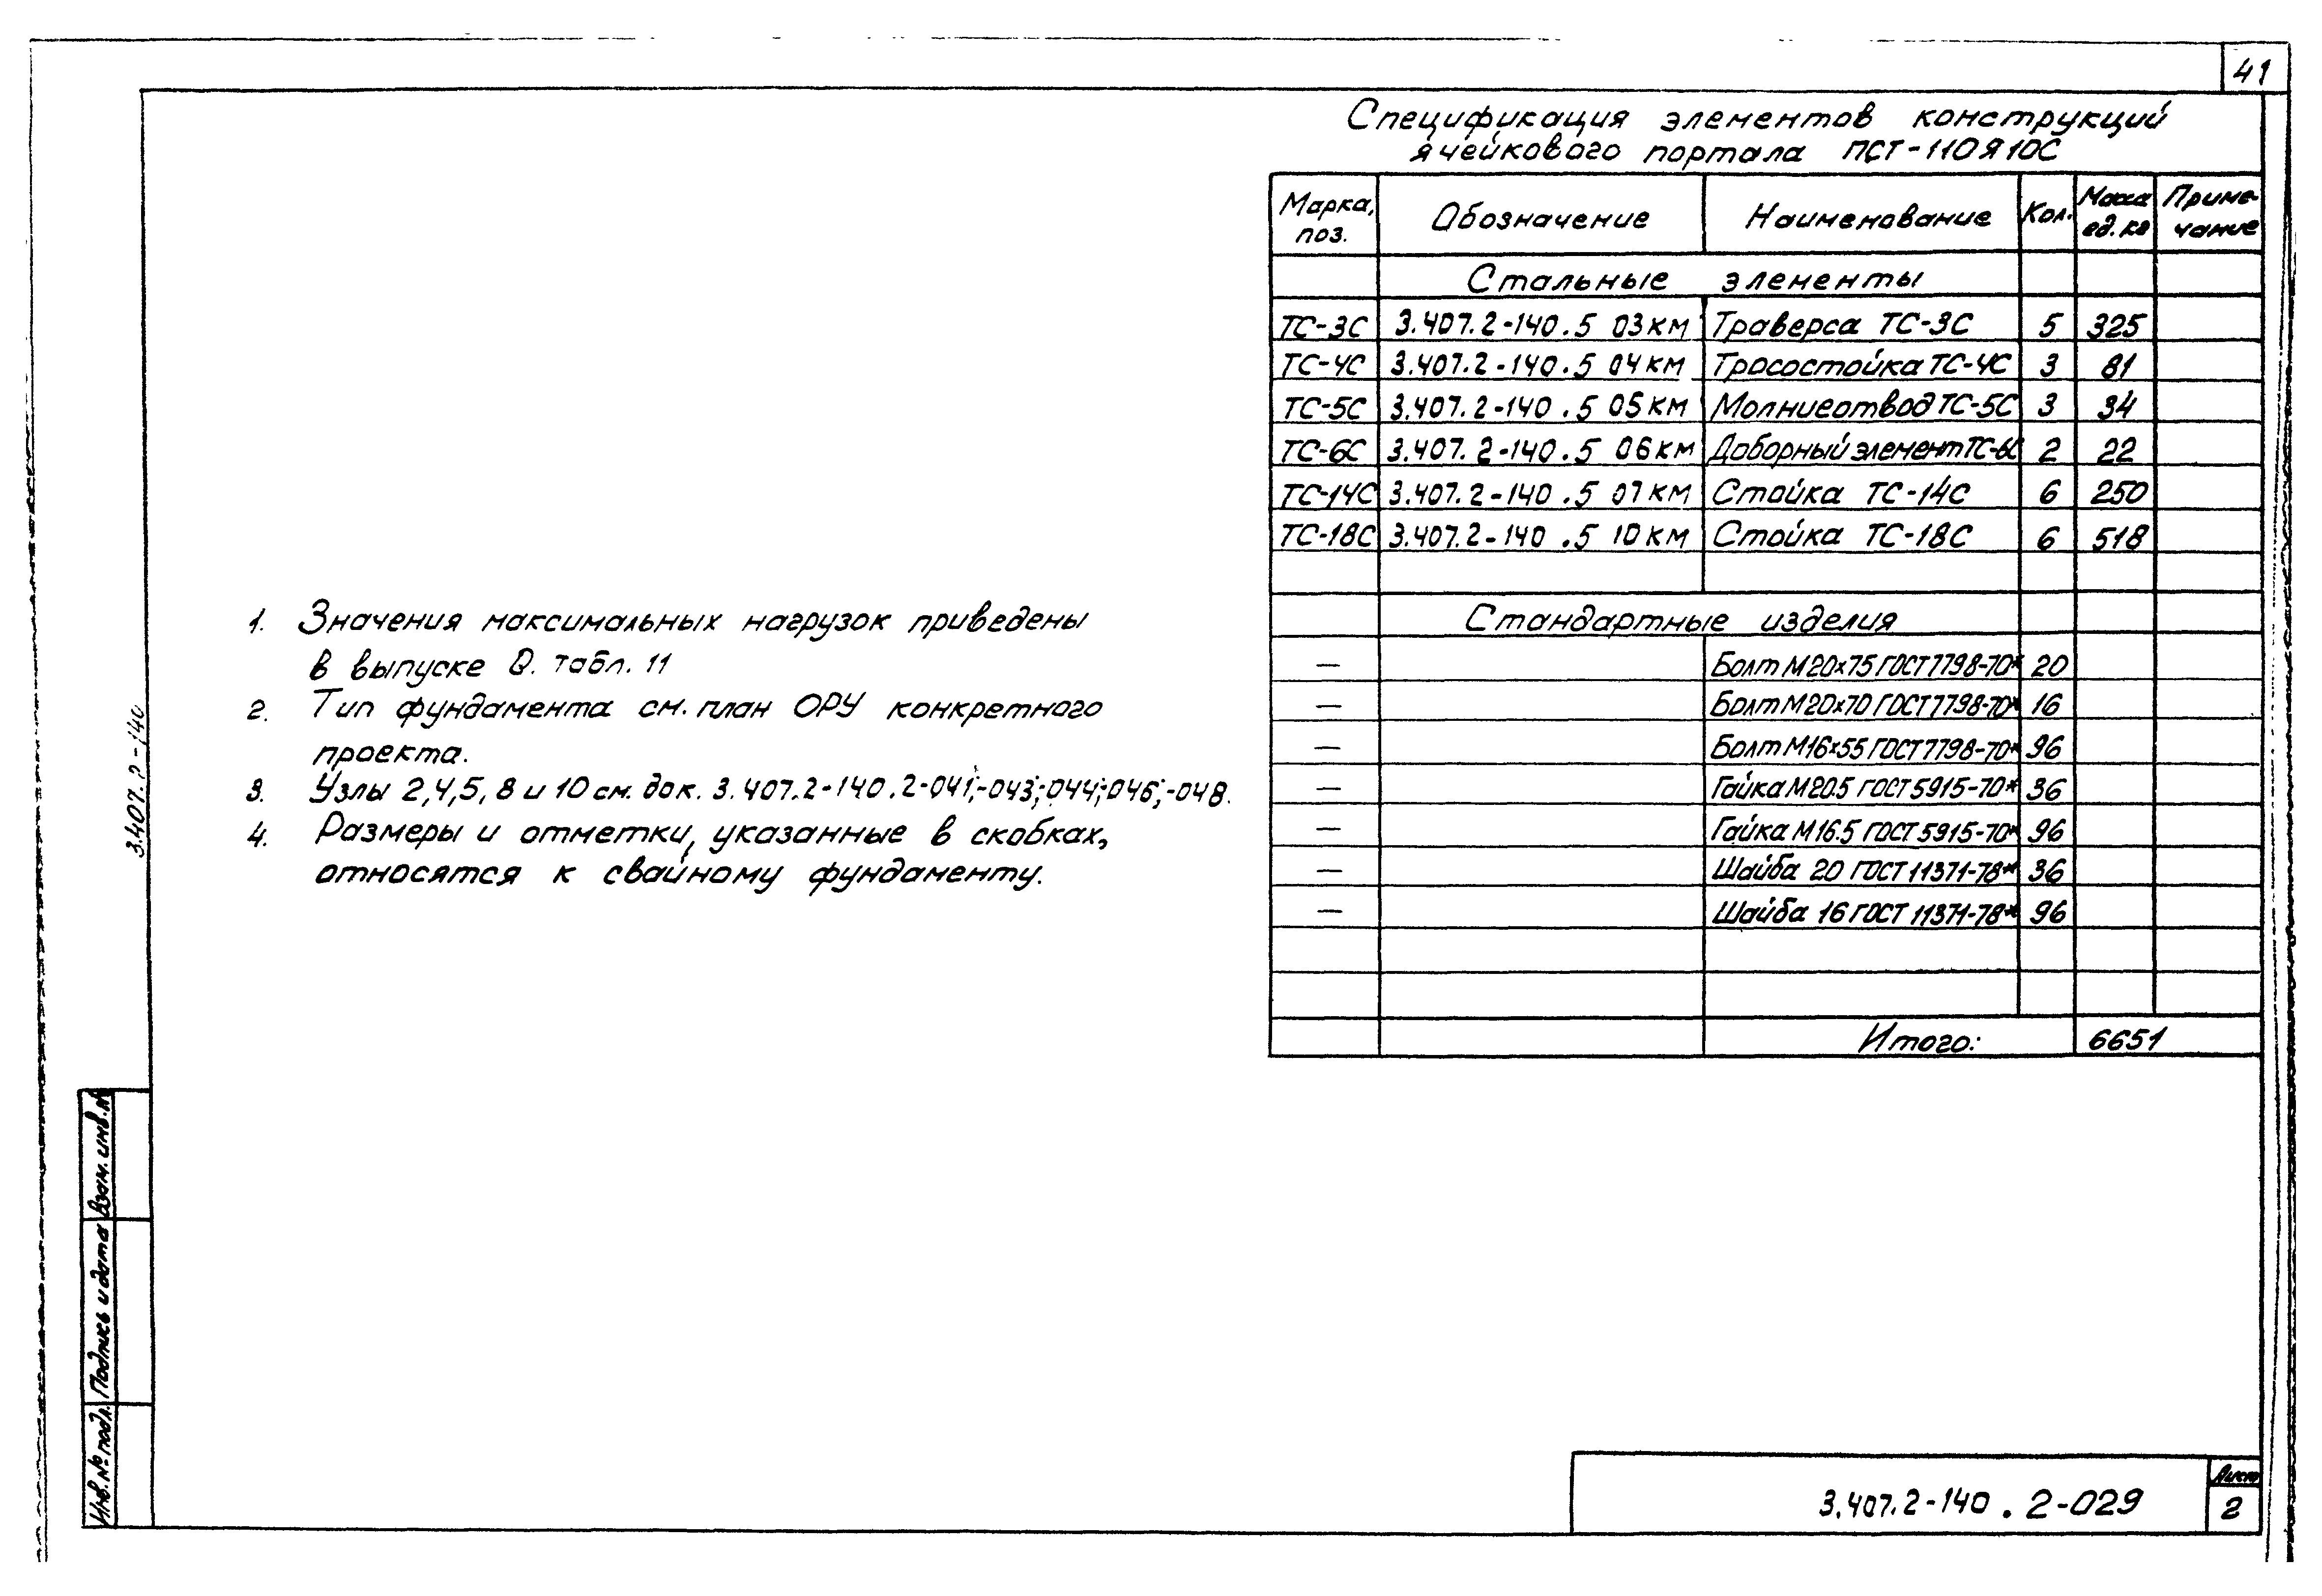 41
Спецификация элементов конструкций
ячейкового портала ПСТ-110Я10С
Марка, поз. Обозначение Наименование Кол. Масса ед. кг Примечание
Стальные элементы
ТС-3С 3.407.2-140.5 03КМ Траверса ТС-3С 5 325
ТС-4С 3.407.2-140.5 04КМ Тросостойка ТС-4С 3 81
ТС-5С 3.407.2-140.5 05КМ Молниеотвод ТС-5С 3 34
ТС-6С 3.407.2-140.5 06КМ Доборный элемент ТС-6С 2 22
ТС-14С 3.407.2-140.5 07КМ Стойка ТС-14С 6 250
ТС-18С 3.407.2-140.5 10КМ Стойка ТС-18С 6 518
Стандартные изделия
— Болт М20х75 ГОСТ 7798-70* 20
— Болт М20х70 ГОСТ 7798-70* 16
— Болт М16х55 ГОСТ 7798-70* 96
— Гайка М20.5 ГОСТ 5915-70* 36
— Гайка М16.5 ГОСТ 5915-70* 96
— Шайба 20 ГОСТ 11371-78* 36
— Шайба 16 ГОСТ 11371-78* 96
Итого: 6651
1. Значения максимальных нагрузок приведены
в выпуске 0. табл. 11
2. Тип фундамента см. план ОРУ конкретного
проекта.
3. Узлы 2,4,5,8 и 10 см. док. 3.407.2-140.2-041;-043;-044;-046;-048.
4. Размеры и отметки, указанные в скобках,
относятся к свайному фундаменту.
3.407.2-140
Взам. инв. №
Подпись и дата
Инв. № подл.
3.407.2-140.2-029
Лист
2